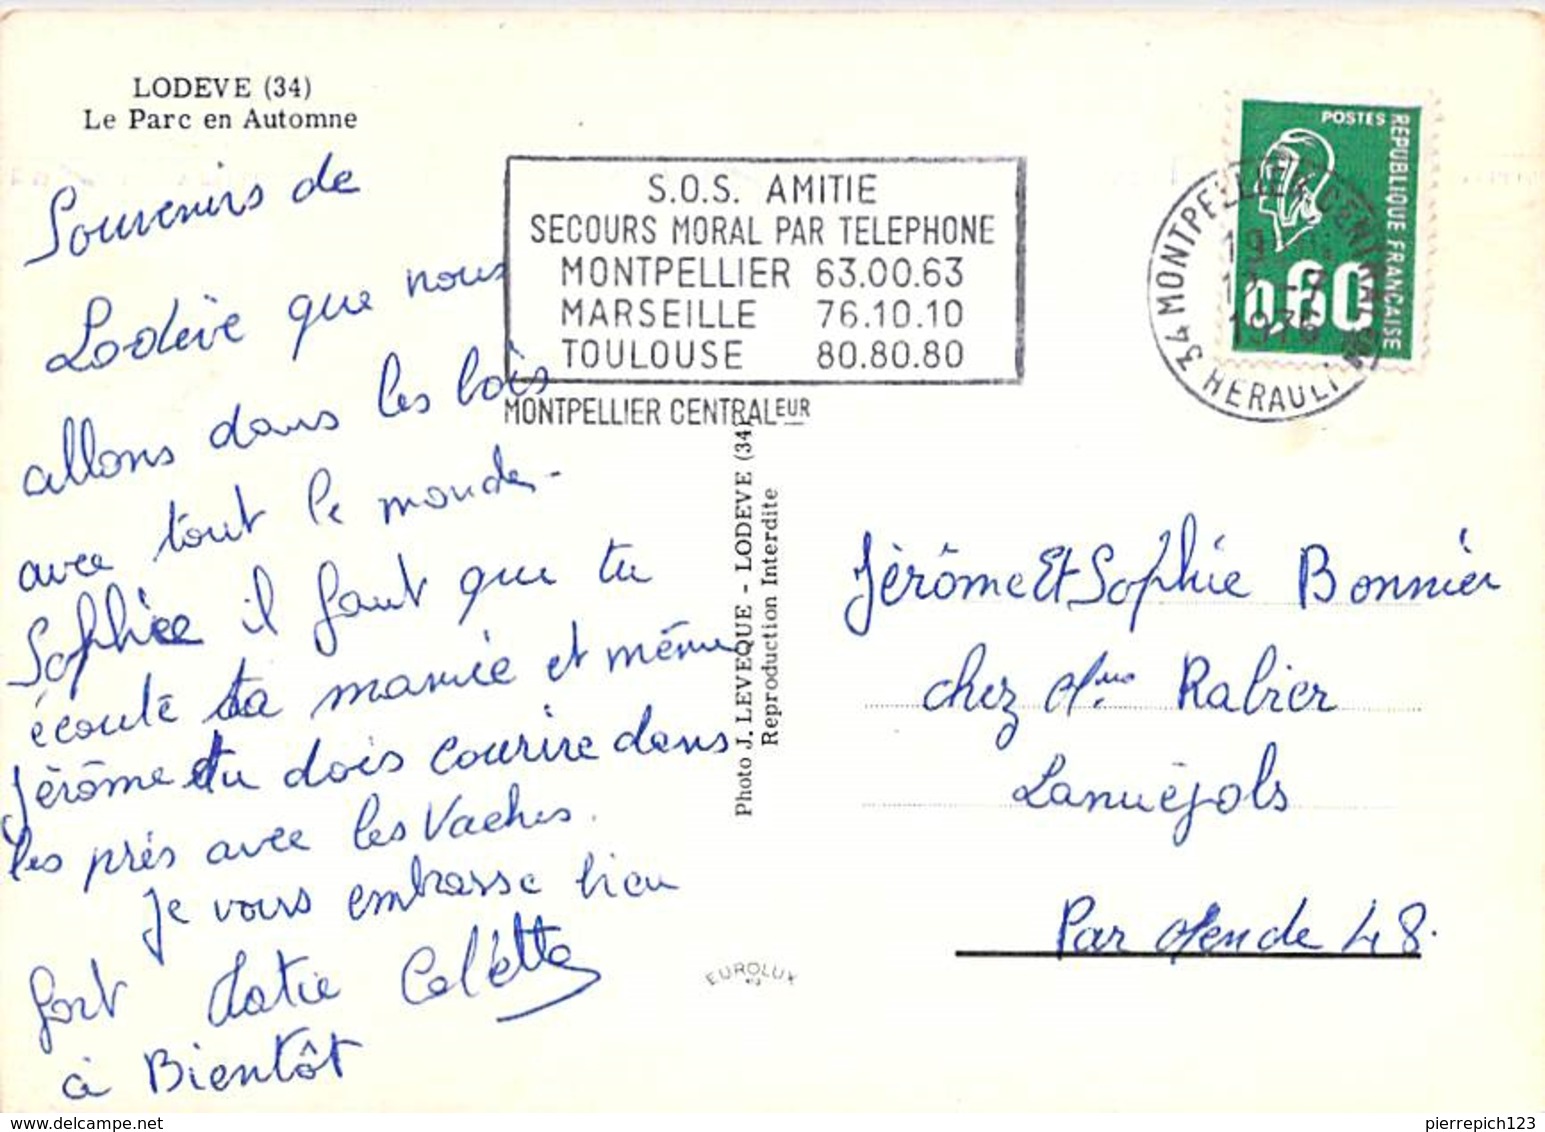 LODEVE (34)
Le Parc en Automne
Souvenirs de
Lodève que nous
allons dans les bois
avec tout le monde -
Sophiee il faut que tu
écoute ta mamie et même
Jérôme tu dois courire dans
les prés avec les Vaches.
Je vous embrasse bien
fort Tatie Colette
à Bientôt
S.O.S. AMITIE
SECOURS MORAL PAR TELEPHONE
MONTPELLIER 63.00.63
MARSEILLE 76.10.10
TOULOUSE 80.80.80
MONTPELLIER CENTRALEUR
Photo J. LEVEQUE - LODEVE (34)
Reproduction Interdite
EUROLUX
POSTES
REPUBLIQUE FRANCAISE
0,60
34 MONTPELLIER CENTRAL
HERAULT
1976
Jérôme Et Sophie Bonnier
chez Mme Rabier
Lanuéjols
Par Mende 48.
pierrepich123